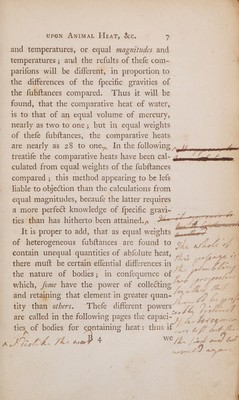 UPON ANIMAL HEAT, &c. 7
and temperatures, or equal magnitudes and
temperatures; and the reſults of theſe com-
pariſons will be different, in proportion to
the differences of the ſpecific gravities of
the ſubſtances compared. Thus it will be
found, that the comparative heat of water,
is to that of an equal volume of mercury,
nearly as two to one; but in equal weights
of theſe ſubſtances, the comparative heats
are nearly as 28 to one. In the following
treatiſe the comparative heats have been cal-
culated from equal weights of the ſubſtances
compared; this method appearing to be leſs
liable to objection than the calculations from
equal magnitudes, becauſe the latter requires
a more perfect knowledge of ſpecific gravi-
ties than has hitherto been attained.
It is proper to add, that as equal weights
of heterogeneous ſubſtances are found to
contain unequal quantities of abſolute heat,
there muſt be certain eſſential differences in
the nature of bodies; in conſequence of
which, ſome have the power of collecting
and retaining that element in greater quan-
tity than others. Theſe different powers
are called in the following pages the capaci-
ties of bodies for containing heat: thus if
B 4 we
The whole of
this passage is